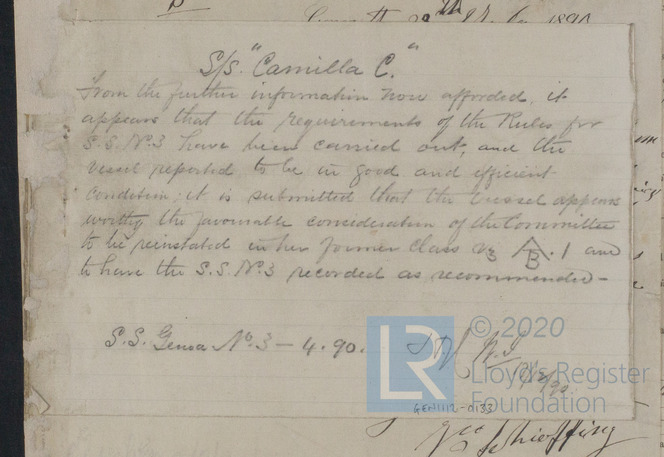 1890
S/S. "Camilla C."
From the further information now afforded, it
appears that the requirements of the Rules for
S.S. No. 3 have been carried out, and the
vessel reported to be in good and efficient
condition; it is submitted that the vessel appears
worthy the favourable consideration of the Committee
to be reinstated in her former class A B . 1 and
to have the S.S. No. 3 recorded as recommended -
S.S. Genoa No. 3 - 4.90.
LR
© 2020
Lloyd's Register
Foundation
GEN1112-0133